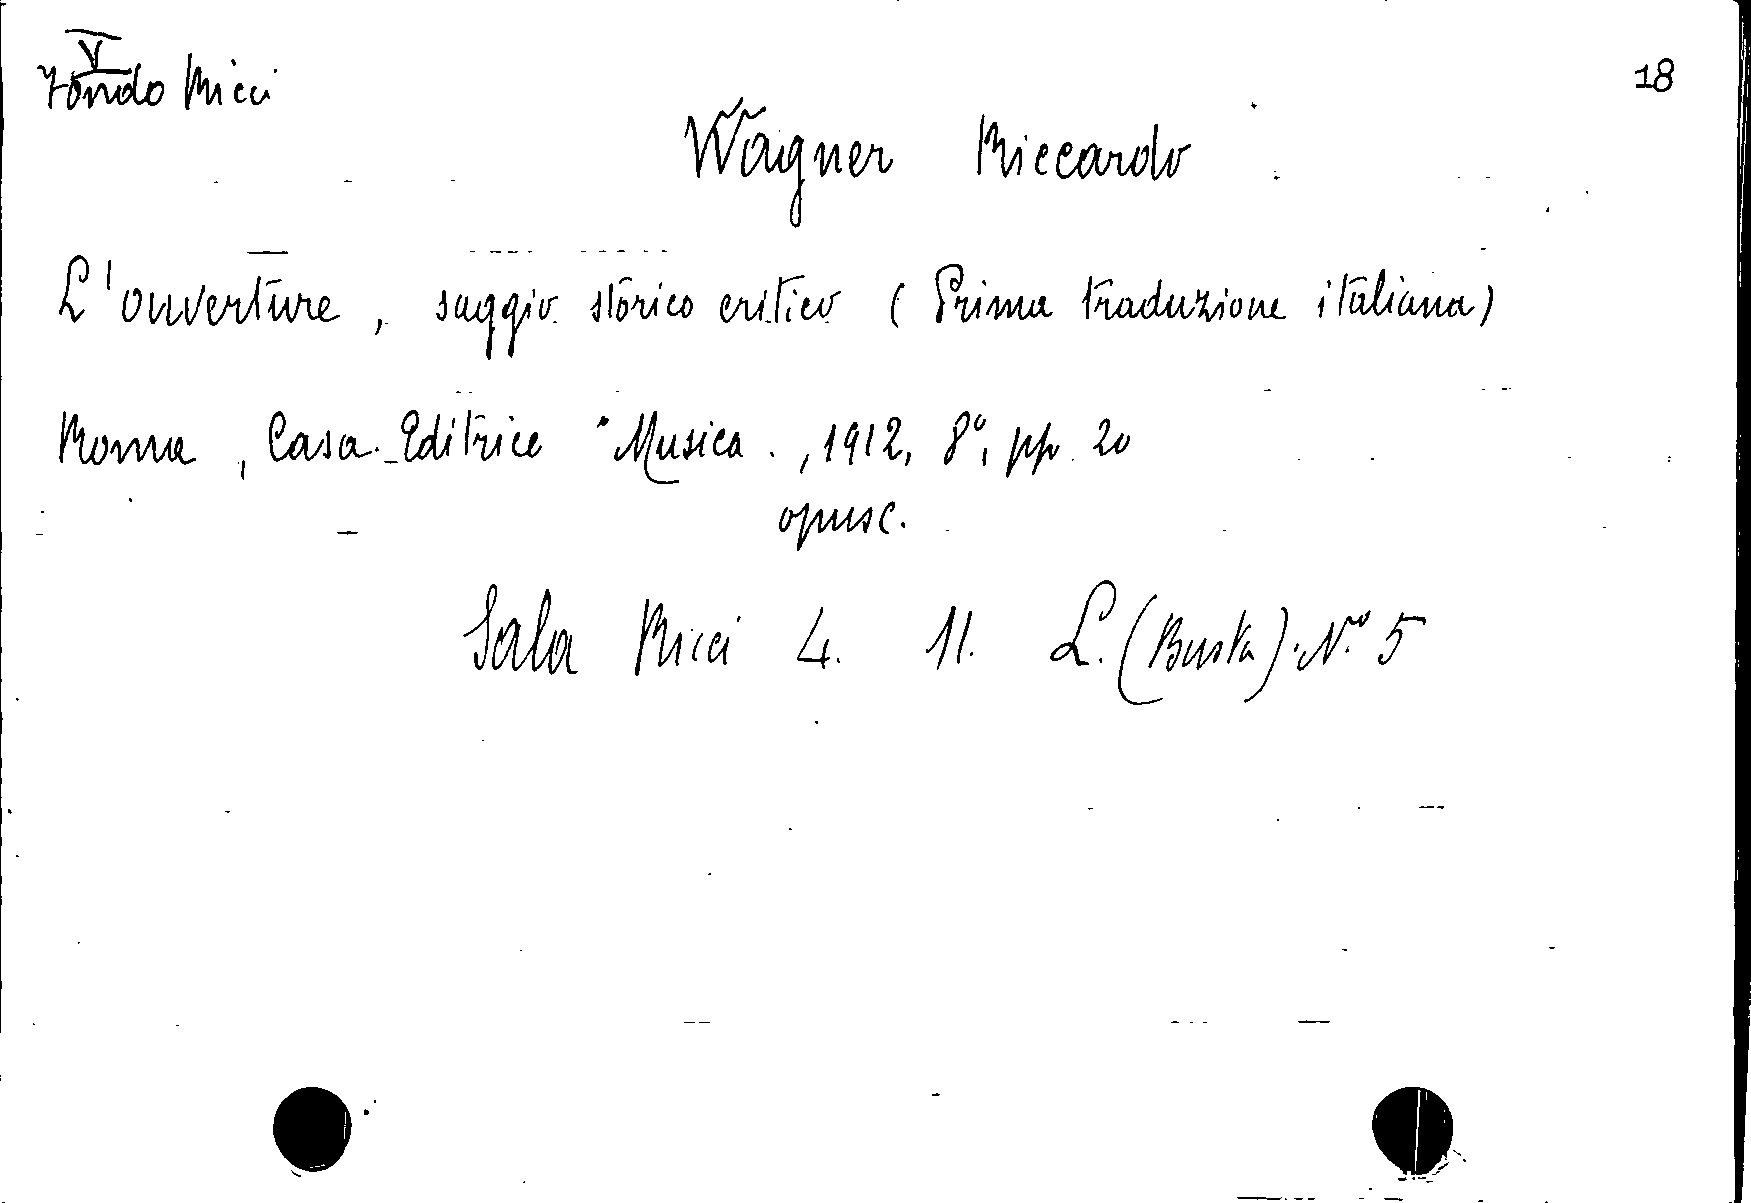 V
Fondo Ricci
18
Wagner Riccardo
L'ouverture, saggio storico critico (Prima traduzione italiana)
Roma, Casa Editrice "Musica", 1912, 8°, pp. 20
opusc.
Sala Ricci 4. 11. L. (Busta). N.° 5